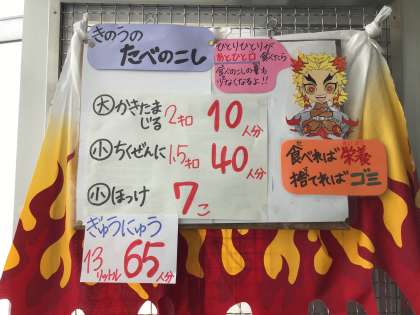 きのうの
たべのこし
ひとりひとりが
あとひと口 食べたら
食べのこしの量も
少なくなるよ!!
大 かきたま
じる 2キロ 10人分
小 ちくぜんに 1.5キロ 40人分
小 ほっけ 7こ
ぎゅうにゅう
13リットル 65人分
食べれば栄養
捨てればゴミ